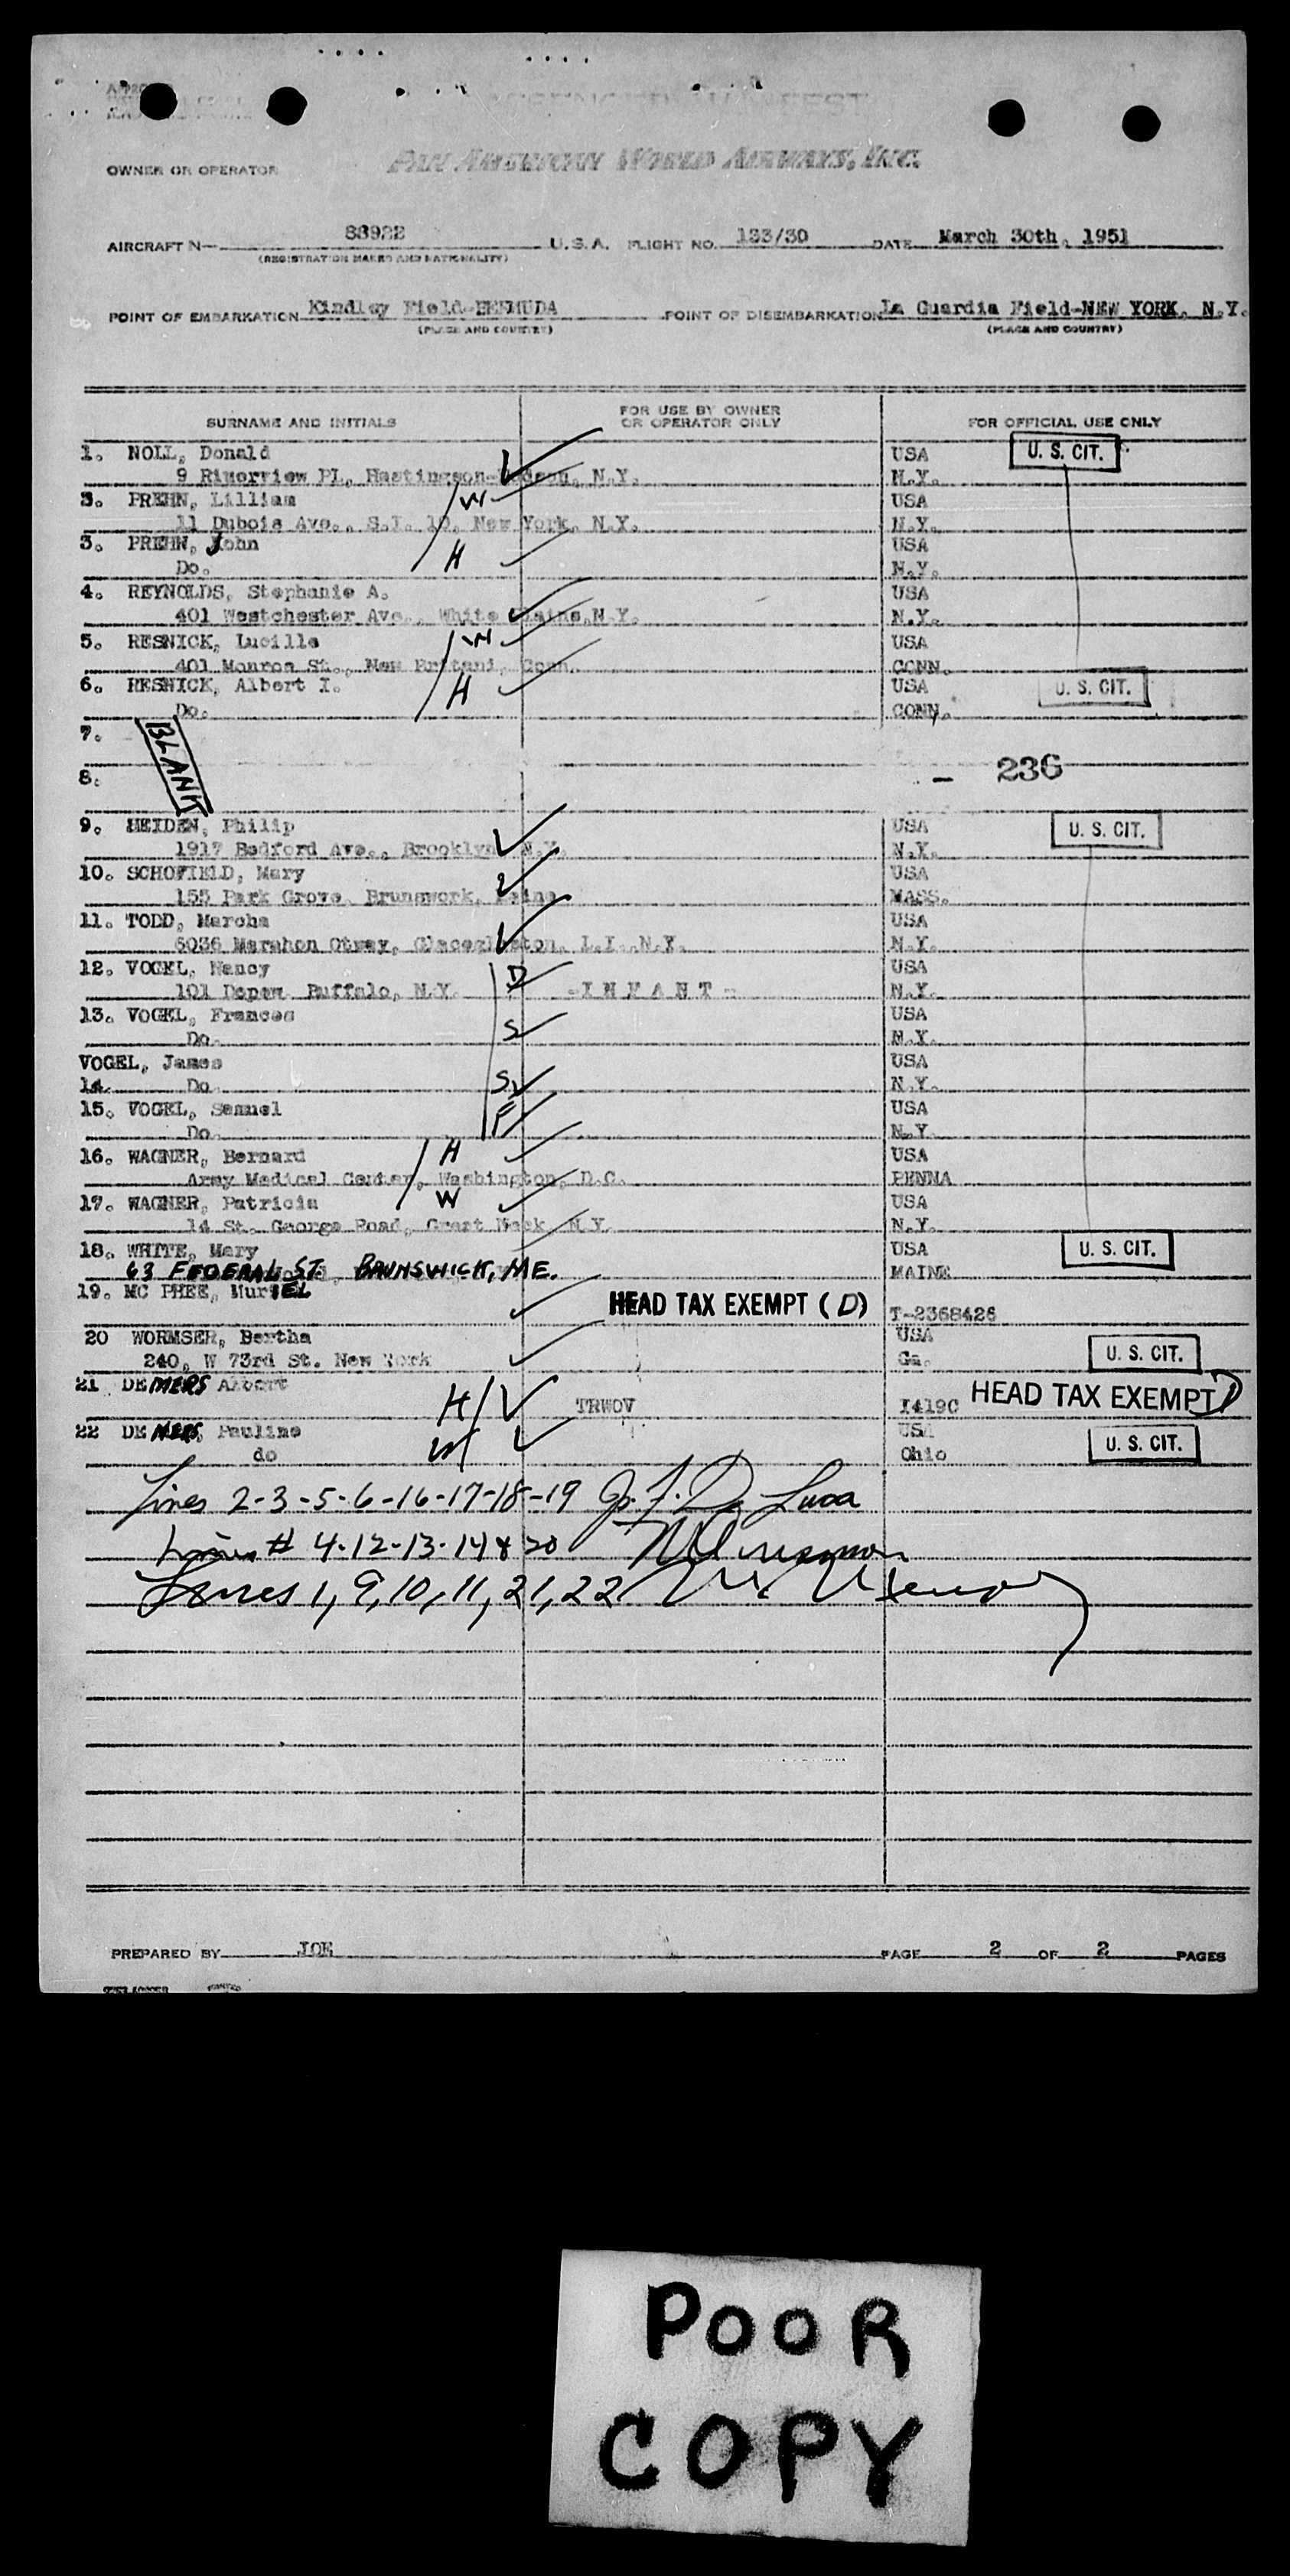 PASSENGER MANIFEST
OWNER OR OPERATOR PAN AMERICAN WORLD AIRWAYS, INC.
AIRCRAFT N- 88922 U.S.A. FLIGHT NO. 133/30 DATE March 30th, 1951
(REGISTRATION MARKS AND NATIONALITY)
POINT OF EMBARKATION Kindley Field-BERMUDA POINT OF DISEMBARKATION La Guardia Field-NEW YORK, N.Y.
(PLACE AND COUNTRY) (PLACE AND COUNTRY)
SURNAME AND INITIALS FOR USE BY OWNER OR OPERATOR ONLY FOR OFFICIAL USE ONLY
1. NOLL, Donald USA U. S. CIT.
9 Rinerview Pl, Hastingson-Hudson, N.Y. N.Y.
2. PREHN, Lilliam W USA
11 Dubois Ave., S.I. 10, New York, N.Y. N.Y.
3. PREHN, John USA
Do. H N.Y.
4. REYNOLDS, Stephanie A. USA
401 Westchester Ave., White Plains, N.Y. N.Y.
5. RESNICK, Lucille W USA
401 Monroe St., New Brittani, Conn. CONN.
6. RESNICK, Albert I. H USA U. S. CIT.
Do. CONN.
7. BLANK
8. - 236
9. HEIDEN, Philip USA U. S. CIT.
1917 Bedford Ave., Brooklyn N.Y. N.Y.
10. SCHOFIELD, Mary USA
155 Park Grove, Brunswork, Maine MASS.
11. TODD, Marcha USA
6036 L.I., N.Y. N.Y.
12. VOGEL, Nancy D USA
101 Depew Buffalo, N.Y. -I N F A N T - N.Y.
13. VOGEL, Frances S USA
Do. N.Y.
VOGEL, James USA
14. Do. S N.Y.
15. VOGEL, Samuel F USA
Do. N.Y.
16. WAGNER, Bernard H USA
Army Medical Center, Washington, D.C. PENNA
17. WAGNER, Patricia W USA
14 St. George Road, Great Neck N.Y. N.Y.
18. WHITE, Mary USA U. S. CIT.
63 FEDERAL ST. BRUNSWICK, ME. MAINE
19. MC PHEE, MurIEL HEAD TAX EXEMPT (D) T-2368426
20 WORMSER, Bertha USA
240, W 73rd St. New York Ga. U. S. CIT.
21 DEMERS Albert H TRWOV I419C HEAD TAX EXEMPT D
22 DE MERS, Pauline W USA U. S. CIT.
do Ohio
Lines 2-3-5-6-16-17-18-19 Jo. F. De Luca
Lines # 4-12-13-14 & 20
Lines 1, 9, 10, 11, 21, 22
PREPARED BY JOE PAGE 2 OF 2 PAGES
POOR
COPY